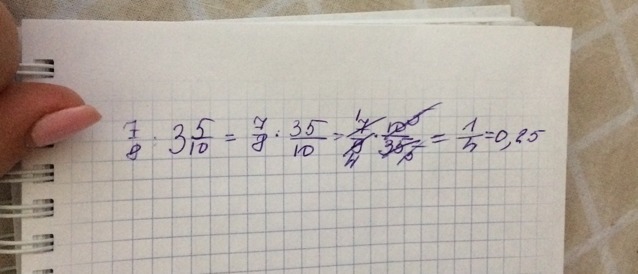 7/8 : 3 5/10 = 7/8 : 35/10 = 7/8 · 10/35 = 1/4 = 0,25